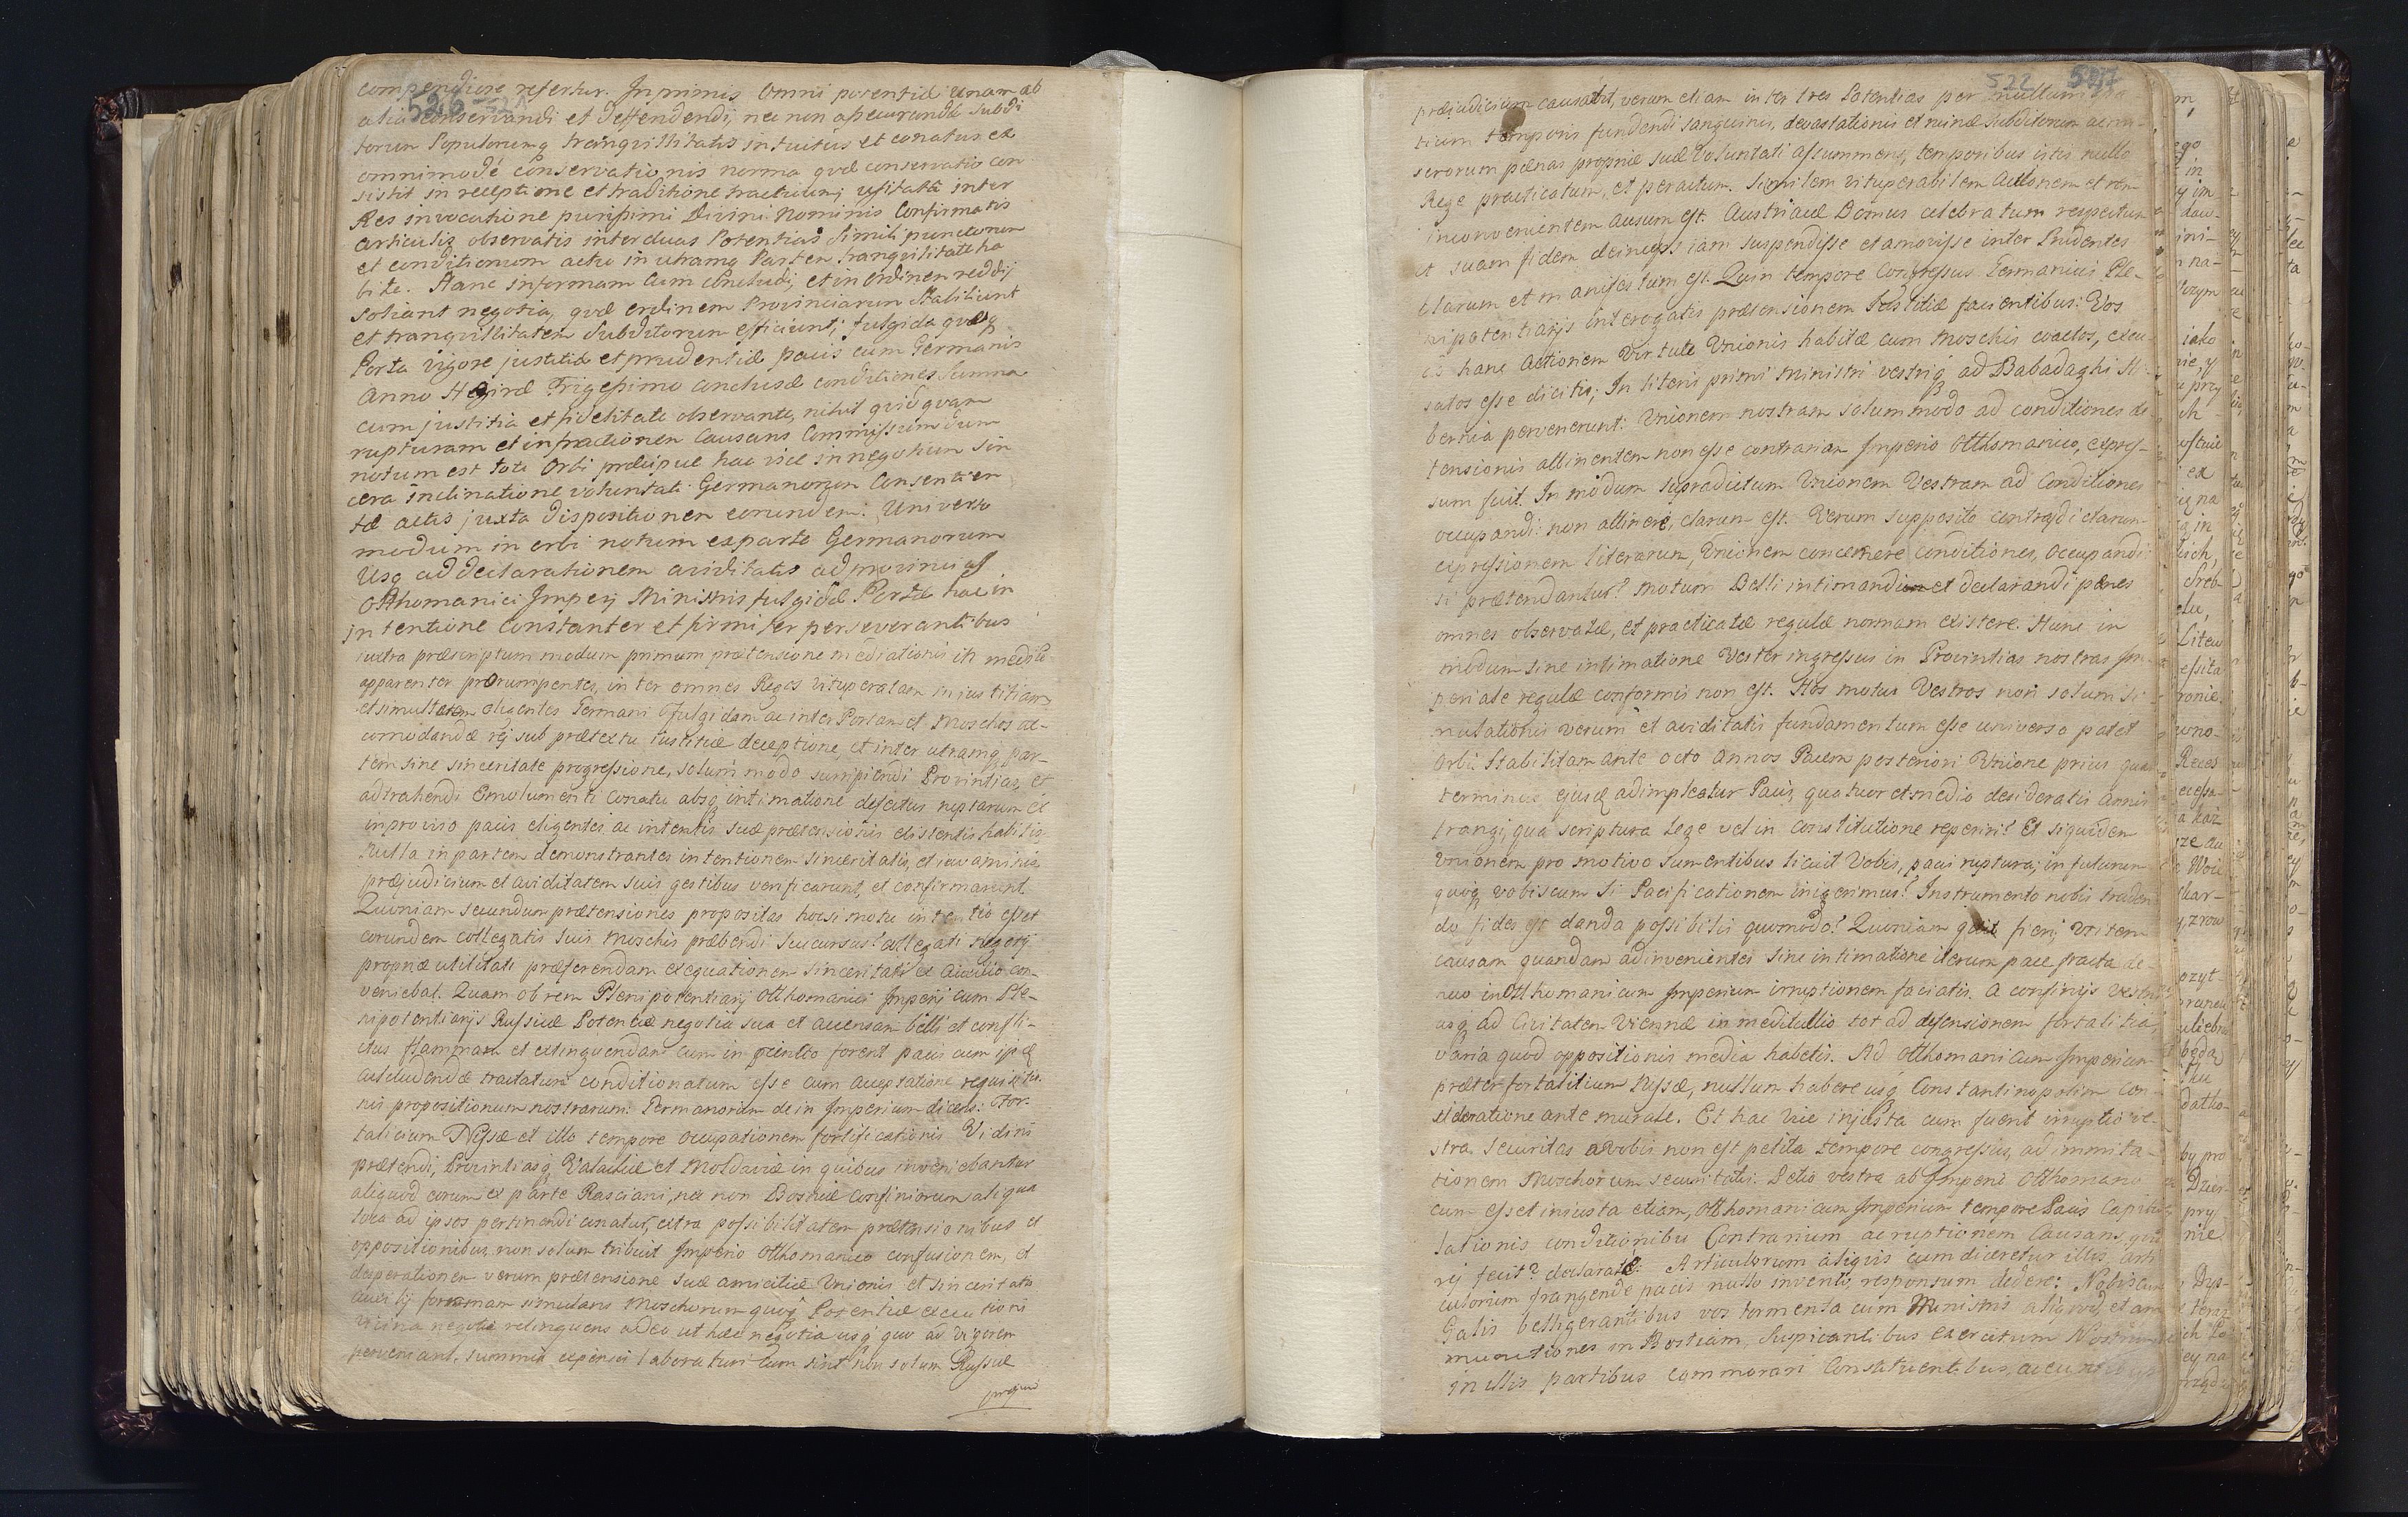 526 521
compendiose refertur. Inprimis Omni potentiæ unam ab
alia conservandi et deffendendi, nec non assecurandæ subdi
torum Populorumq tranquillitatis intuitus et conatus ex
omnimodé Conservationis norma quæ conservatio con
sistit in receptione et traditione tractatum, usitata inter
Res invocatione purissimi Divini Nominis Confirmatis
articulis observatis inter duas Potentias Simili punctorum
et conditionum actu in utramq Partem tranquilitate ha
bita. Hanc in formam Cum Concludi, et in Ordinem reddij
soliant negotia, quæ ordinem Provinciarum Stabiliunt
et tranquillitatem Subditorum efficiunt, fulgida quoq
Porta vigore justitiæ et prudentiæ pacis cum Germanis
Anno Hegiræ Trigesimo conclusæ conditiones Summa
cum justitia et fidelitate observante, nihil quidquam
rupturam et infractionem Causans Commissum dum
notum est toti Orbi præcipue hac vice in negotium sin
cera inclinatione voluntati Germanorum Consentien
tæ actis juxta dispositionem eorundem. Universo
modum in orbi notum ex parte Germanorum
Usq ad declarationem aviditatis ad provincias
Otthomanici Imperij Ministris fulgidæ Portæ hac in
intentione constanter et firmiter perseverantibus
iuxta præscriptum modum primum prætensione mediationis in medio
apparenter prorumpentes, inter omnes Reges vituperatam iniustitiam
et simultatem eligentes Germani Fulgidam ac inter Portam et Moschos ac-
comodandæ rej sub prætextu iustitiæ deceptione, et inter utramq par-
tem sine sinceritate progressione, solum modo surripiendi Provintias, et
adtrahendi Emolumenti Conatu absq intimatione defectus rupturam ex
improviso pacis eligentes, ac intentis suæ prætensionis existentis habitis
Nulla in partem demonstrantes intentionem sinceritatis, et
præjudicium et aviditatem suis gestibus verificarunt, et confirmarunt
Quoniam secundum prætensiones propositas hocsi motu intentio esset
eorundem collegatis suis Moschis præbendi Succursus? collegati negotij
propriæ utilitati præferendam exequationem sinceritatis ex
veniebat. Quam ob rem Plenipotentiarij Otthomanici Imperij cum Ple-
nipotentiarijs Russiæ Potentiæ negotia sua et accensam belli et confli-
ctus flammam et extinguendam cum in procinctu forent pacis cum ipsæ
concludendæ tractatum conditionatum esse cum acceptatione requisitio
nis propositionum nostrarum. Germanorum dein Imperium dicens: For-
talicium Nissæ et illo tempore occupationem fortificationis Vidini
prætendi, Provintiasq Valachiæ et Moldaviæ in quibus inveniebantur
aliquod eorum ex parte Rasciani, nec non Bosniæ Confiniorum aliqua
loca ad ipsos pertinendi conatur, extra possibilitatem prætensionibus et
oppositionibus, non solum tribuit Imperio Otthomanico confusionem, et
desperationem verum prætensione suæ amicitiæ Unionis et sinceritatis
formam simulans Moschorum quoq Potentiæ executioni
vicina negotia relinquens adeo ut hæc negotia usq quo ad Vigorem
perveniant, summis expensis laboraturi Cum sint non solum Russiæ
præju
522 527
præjudicium causabit, verum etiam inter tres Potentias per nullum spa
tium temporis fundendi sanguinis, devastationis et ruinæ Subditorum ac mi-
serorum pænas propriæ suæ voluntati assummens, temporibus istis nullo
Rege practicatum, et peractum. Similem vituperabilem Actionem et rem
inconvenientem ausum est. Austriacæ Domus celebratum respectum
et suam fidem deinceps iam suspendisse et amovisse inter Prudentes
clarum et manifestum est. Quin tempore Congressus Germanici Ple-
nipotentiarijs interogatis prætensionem Justitiæ facientibus: Vos
ex hanc Actionem Virtute Unionis habitæ cum Moschis coactos, excu
satos esse dicitis; In literis primi Ministri vestriq ad Babadaghi Hi-
bernia pervenerunt: Unionem nostram solummodo ad conditiones de
tensionis attinentem non esse contrariam Imperio Otthomanico, expres-
sum fuit. In modum supradictum Unionem Vestram ad Conditiones
occupandi non attinere, clarum est. Verum supposito contradictarum
expressionem literarum, Unionem concernere Conditiones, occupandi
si prætendantur? motum Belli intimandi et declarandi pænes
omnes observatæ, et practicatæ regulæ normam existere. Hunc in
modum sine intimatione Vester ingressus in Provintias nostras Im-
periale regulæ conformis non est. Hos motus Vestros non solum si
mulationis verum et aviditatis fundamentum esse universo patet
Orbi. Stabilitam ante octo Annos Pacem posteriori Unione prius quam
terminus ejusq adimpleatur Pacis, quatuor et medio desideratis annis
frangi, qua scriptura Lege vel in Constitutione reperiri? Et siquidem
Unionem pro motivo sumentibus licuit Vobis, pacis ruptura; in futurum
quoq vobiscum Si Pacificationem inigerimus? Instrumento nobis traden
do fides est danda possibilis quomodo? Quoniam quit fieri, Ut item
causam quandam adinvenientes Sine intimatione iterum pace fracta de-
nuo in Otthomanicum Imperium irruptionem faciatis. A confinijs Vestris
usq ad Civitatem Viennæ in meditullio tot ad defensionem fortalitia
varia quod oppositionis media habetis. Ad Otthomanicum Imperium
præter fortalitium Nissæ, nullum habere usq Constantinopolim Con-
sideratione ante murale. Et hac Vice injusta cum fuerit irruptio ve-
stra, Securitas a vobis non est petita tempore congressus, ad immita-
tionem Moschorum securitatis. Petio vestra ab Imperio Otthomano
cum esset iniusta etiam, Otthomanicum Imperium tempore Pacis Capitu
lationis conditionibus Contrarium ac ruptionem Causans, quid
rej fecit? declarate. Articulorum aliquis cum diceretur illis, arti
culorum frangendæ pacis nullo invento, responsum dedere: Nobiscum
Gatis belligerantibus vos tormenta cum Ministris aliquod, et am
munitiones in Bosniam, Suspicantibus exercitum Nostrum
in illis partibus commorari Constituentibus,